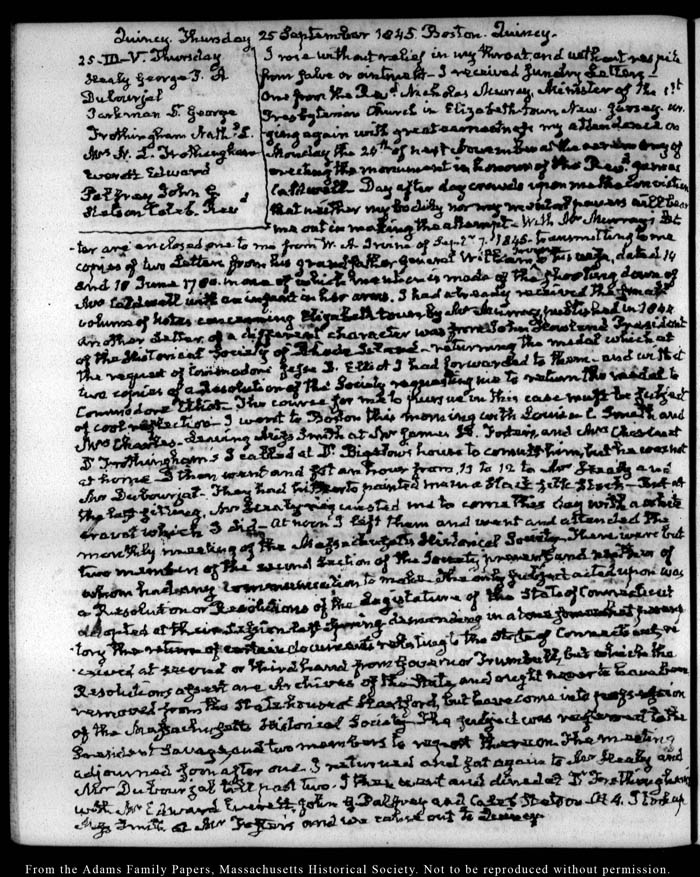 Quincy. Thursday 25 September 1845. Boston. Quincy.
25. III–V. Thursday
Healy George P. A
Dubourjal
Parkman D. George
Frothingham Nath.l L.
Mrs N. L. Frothingham
Everett Edward
Palfrey John G
Stetson Caleb. Revd
I rose without relief in my throat, and without respite
from salve or ointment – I received sundry Letters –
One from the Revd Nicholas Murray, Minister of the 1st
Presbyterian Church in Elizabethtown New Jersey. ur-
ging again with great earnestness my attendance on
Monday the 24th of next November at the ceremony of
erecting the monument in honour of the Revd James
Caldwell – Day after day crowds upon me the conviction
that neither my bodily nor my mental powers will bear
me out in making the attempt – With Mr Murray's Let-
-ter are enclosed one to me from W. A. Irvine of Sept 7. 1845 – transmitting to me
copies of two Letters from his grandfather General William Irvine to his wife, dated 14
and 18 June 1780. in one of which mention is made of the shooting down of
Mrs Caldwell with an infant in her arms. I had already received the small
volume of Notes concerning Elizabeth town by Mr Murray, published in 1844
Another Letter, of a different character was from John Howland President
of the Historical Society of Rhode Island – returning the medal which at
the request of Commodore Jesse D. Elliot I had forwarded to them – and with it
two copies of a Resolution of the Society requesting me to return the medal to
Commodore Elliot – The course for me to pursue in this case must be subject
of cool reflection – I went to Boston this morning with Louisa C. Smith and
Mrs Charles – Leaving Miss Smith at Mr James H. Foster's, and Mrs Charles at
Dr Frothingham's I called at Dr Bigelow's house to consult him, but he was not
at home. I then went and sat an hour from 11 to 12 to Mr Healy and
Mr Dubourjal – They had hitherto painted me in a black silk stock – But at
the last sitting, Mr Healy requested me to come this day with a white
cravat which I did – At noon I left them and went and attended the
monthly meeting of the Massachusetts Historical Society – There were but
two members of the second section of the Society present, and neither of
whom had any communication to make – The only subject acted upon was
a Resolution or Resolutions of the Legislature of the State of Connecticut
adopted at their session last Spring demanding in a tone
tory the return of certain documents relating to the State of Connecticut, re
-ceived at second or third hand from Governor Trumbull, but which the
Resolutions assert are Archives of the State and ought never to have been
removed from the State house at Hartford, but have come into possession
of the Massachusetts Historical Society – The subject was referred to the
President Savage, and two members to report thereon. The meeting
adjourned soon after one. I returned and sat again to Mr Healy and
Mr Dubourjal till past two. I then went and dined at Dr Frothingham's
with Mr Edward Everett John G. Palfrey and Caleb Stetson – At 4. I took up
Miss Smith at Mr Foster's and we came out to Quincy.
From the Adams Family Papers, Massachusetts Historical Society. Not to be reproduced without permission.